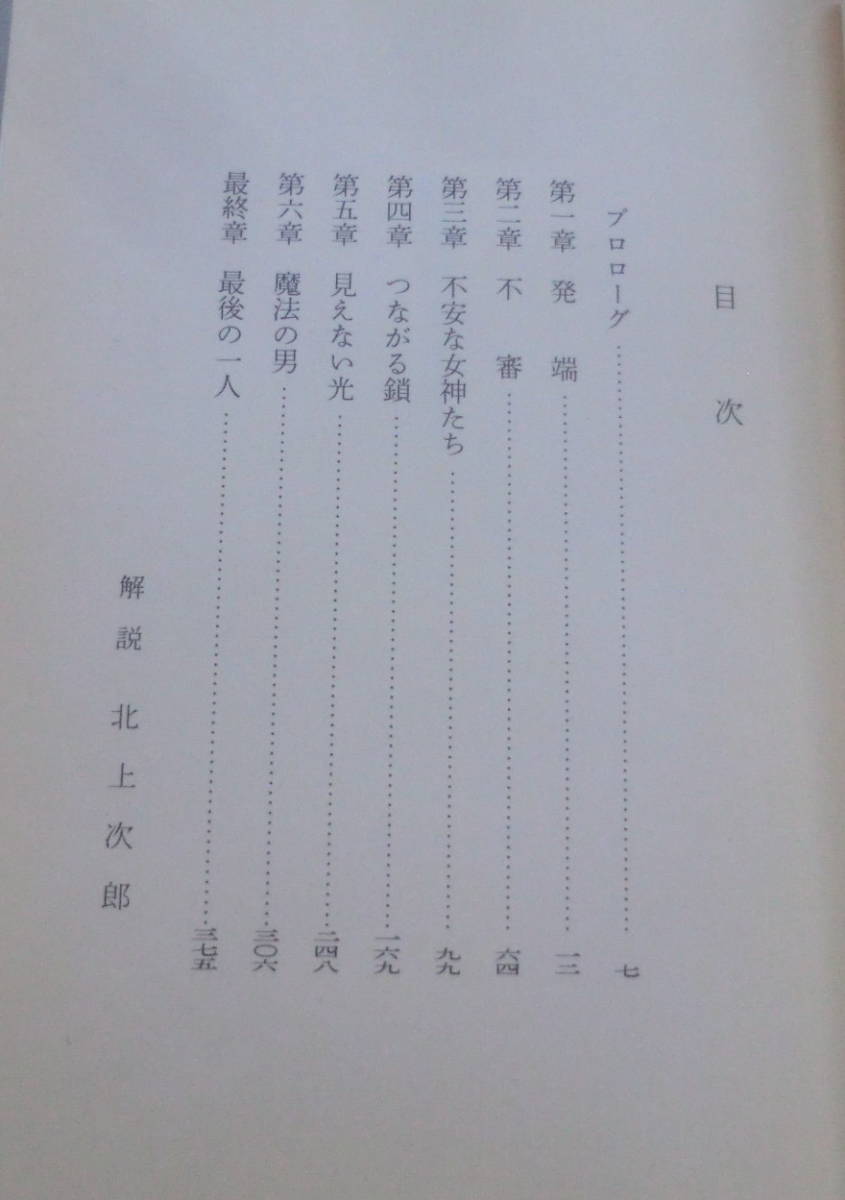 目次
プロローグ……………………七
第一章 発端……………………一二
第二章 不審……………………六四
第三章 不安な女神たち……………………九九
第四章 つながる鎖……………………一六九
第五章 見えない光……………………二四八
第六章 魔法の男……………………三〇六
最終章 最後の一人……………………三七五
解説 北上次郎